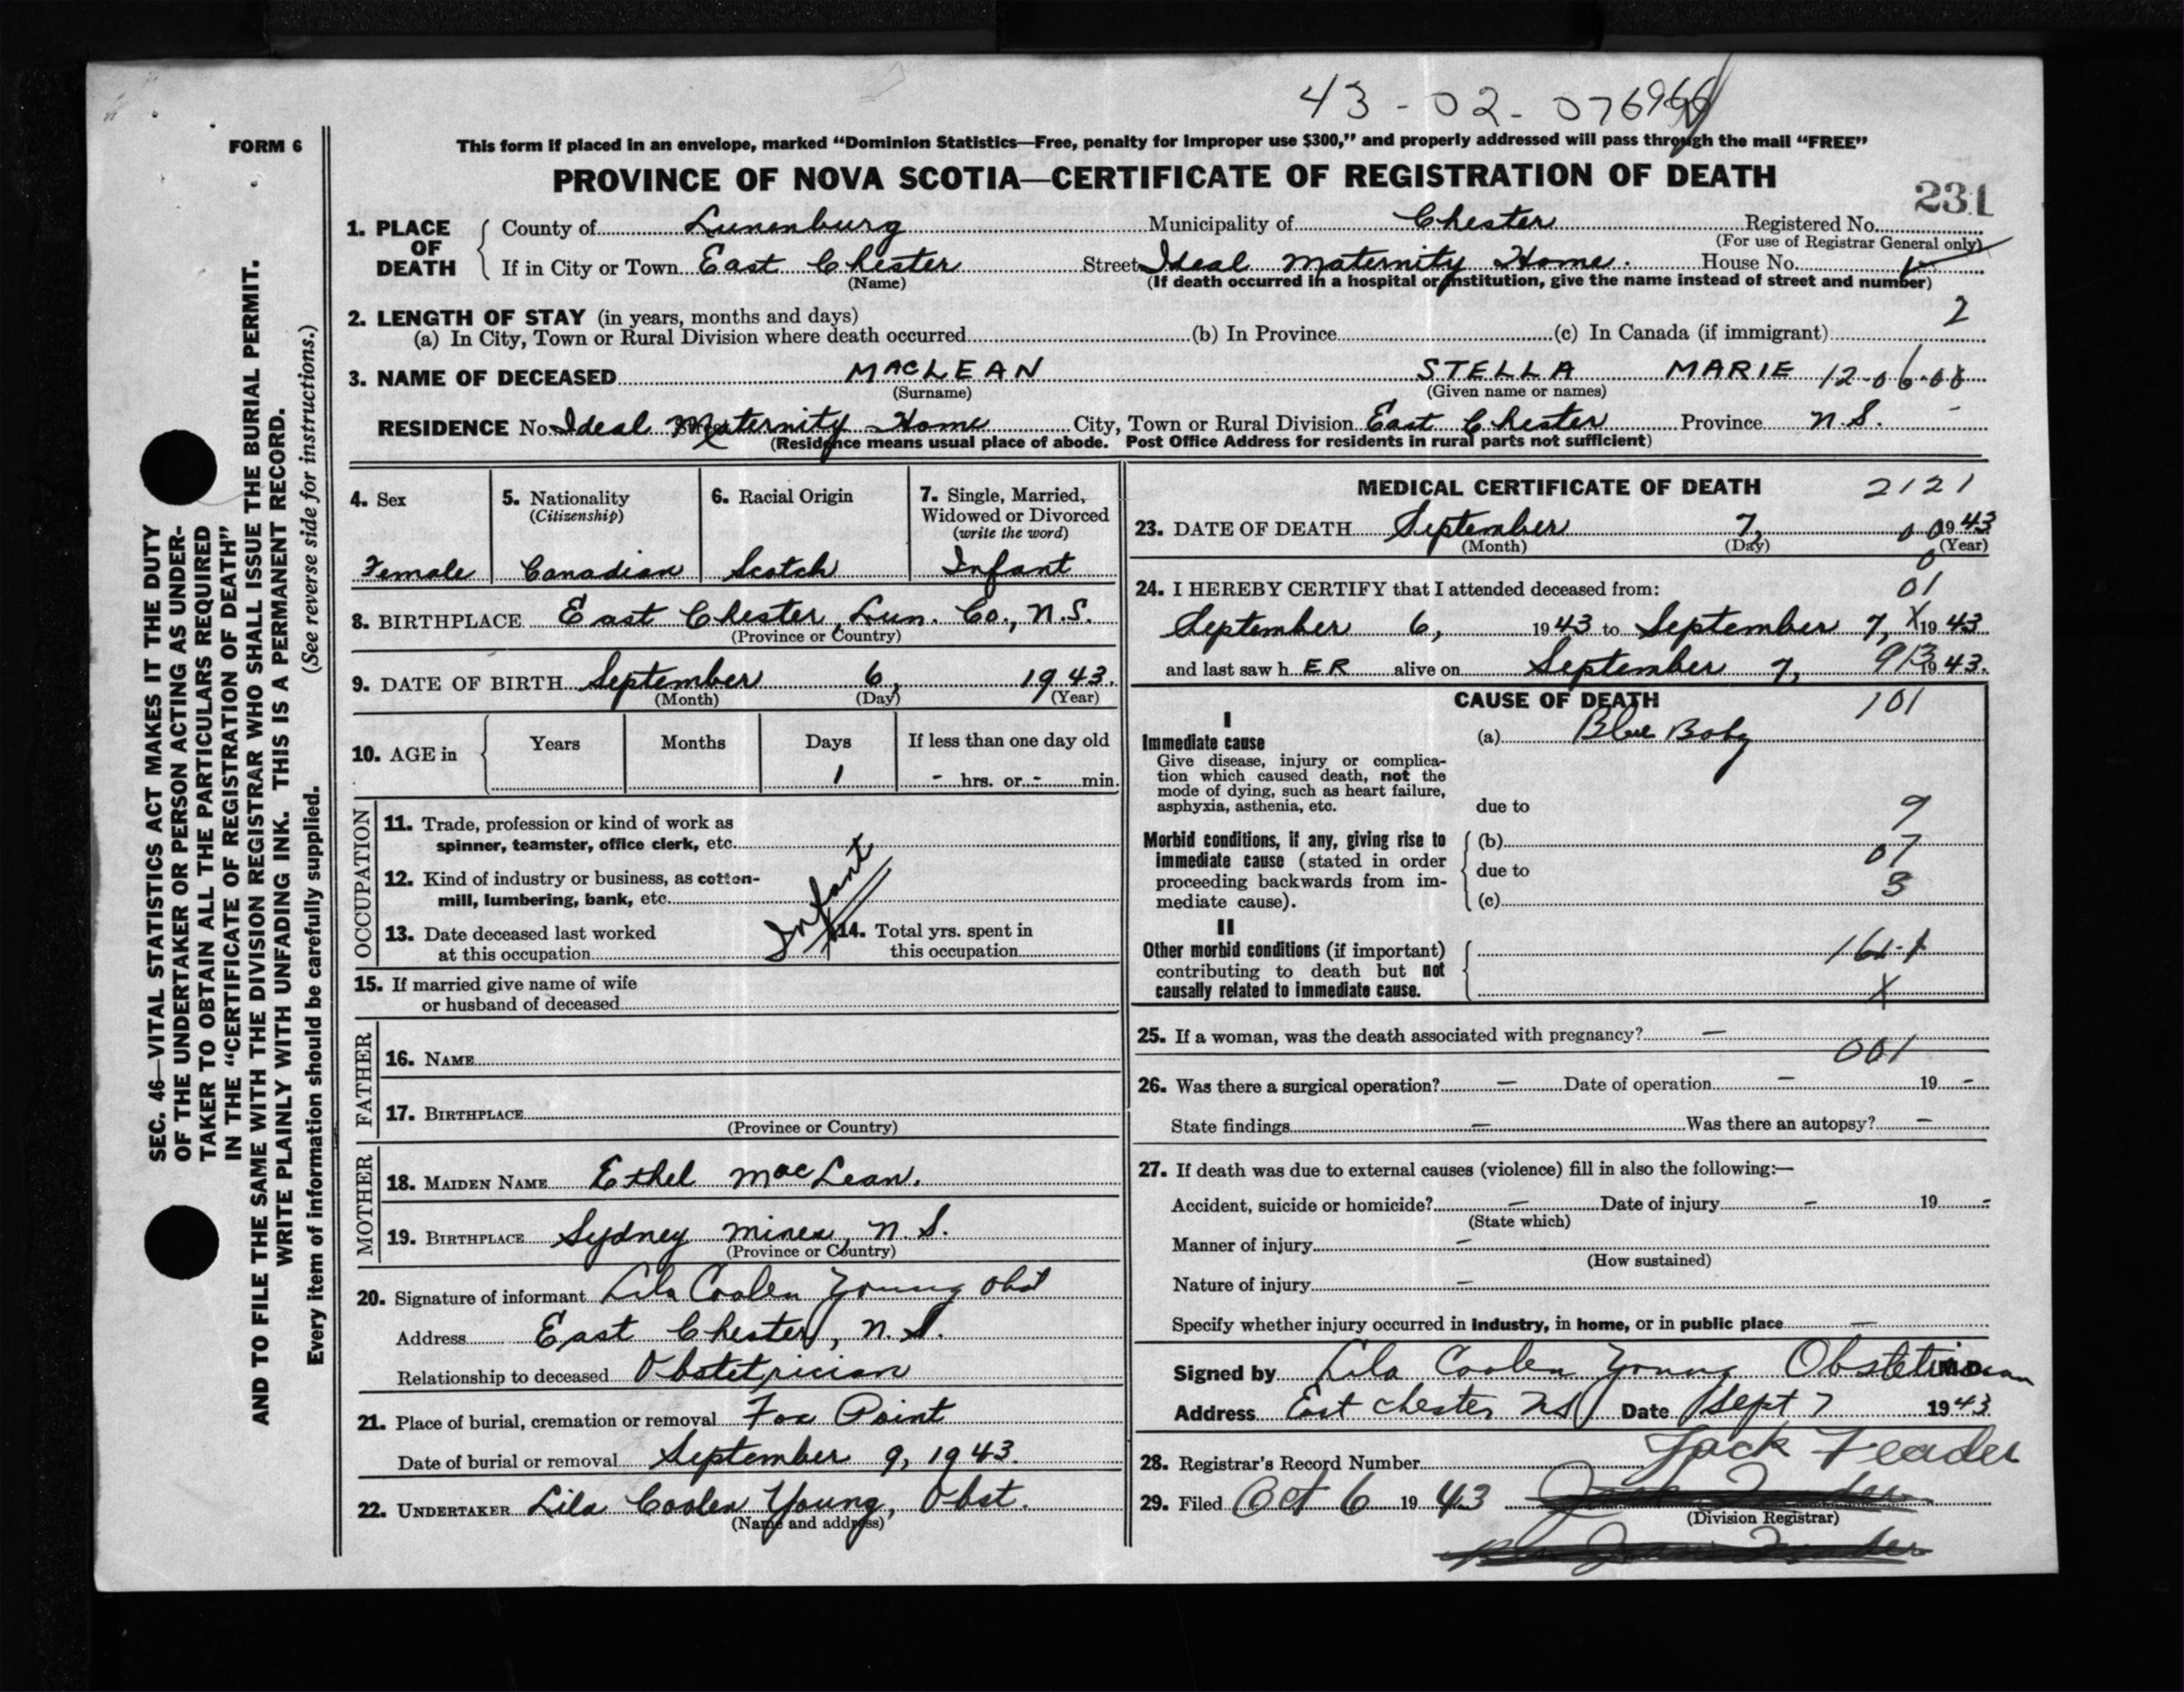 43-02-0769
FORM 6
This form if placed in an envelope, marked “Dominion Statistics—Free, penalty for improper use $300,” and properly addressed will pass through the mail “FREE”
PROVINCE OF NOVA SCOTIA—CERTIFICATE OF REGISTRATION OF DEATH
231
1. PLACE OF DEATH County of Lunenburg Municipality of Chester Registered No.
(For use of Registrar General only)
If in City or Town East Chester Street Ideal Maternity Home. House No.
(Name) (If death occurred in a hospital or institution, give the name instead of street and number)
2
2. LENGTH OF STAY (in years, months and days)
(a) In City, Town or Rural Division where death occurred (b) In Province (c) In Canada (if immigrant)
3. NAME OF DECEASED MACLEAN STELLA MARIE 12-06-08
(Surname) (Given name or names)
RESIDENCE No. Ideal Maternity Home City, Town or Rural Division East Chester Province N.S. -
(Residence means usual place of abode. Post Office Address for residents in rural parts not sufficient)
4. Sex
Female
5. Nationality
(Citizenship)
Canadian
6. Racial Origin
Scotch
7. Single, Married,
Widowed or Divorced
(write the word)
Infant
8. BIRTHPLACE East Chester, Lun. Co., N.S.
(Province or Country)
9. DATE OF BIRTH September 6, 1943.
(Month) (Day) (Year)
10. AGE in
Years Months Days If less than one day old
1 - hrs. or - min.
OCCUPATION
11. Trade, profession or kind of work as
spinner, teamster, office clerk, etc.
12. Kind of industry or business, as cotton-
mill, lumbering, bank, etc.
Infant
13. Date deceased last worked
at this occupation
14. Total yrs. spent in
this occupation
15. If married give name of wife
or husband of deceased
FATHER
16. NAME
17. BIRTHPLACE
(Province or Country)
MOTHER
18. MAIDEN NAME Ethel MacLean.
19. BIRTHPLACE Sydney Mines, N.S.
(Province or Country)
20. Signature of informant Lila Coolen Young Obst
Address East Chester, N.S.
Relationship to deceased Obstetrician
21. Place of burial, cremation or removal Fox Point
Date of burial or removal September 9, 1943.
22. UNDERTAKER Lila Coolen Young, Obst.
(Name and address)
MEDICAL CERTIFICATE OF DEATH 2121
23. DATE OF DEATH September 7, 1943
(Month) (Day) (Year)
24. I HEREBY CERTIFY that I attended deceased from: 01
September 6, 1943 to September 7, X 1943
and last saw hER alive on September 7, 913 1943.
CAUSE OF DEATH 101
I
Immediate cause
Give disease, injury or complica-
tion which caused death, not the
mode of dying, such as heart failure,
asphyxia, asthenia, etc.
(a) Blue Baby
due to
9
Morbid conditions, if any, giving rise to
immediate cause (stated in order
proceeding backwards from im-
mediate cause).
(b)
07
due to
3
(c)
II
Other morbid conditions (if important)
contributing to death but not
causally related to immediate cause.
161-1
X
25. If a woman, was the death associated with pregnancy? —
001
26. Was there a surgical operation? — Date of operation - 19 -
State findings — Was there an autopsy? —
27. If death was due to external causes (violence) fill in also the following:—
Accident, suicide or homicide? — Date of injury - 19 -
(State which)
Manner of injury —
(How sustained)
Nature of injury —
Specify whether injury occurred in industry, in home, or in public place —
Signed by Lila Coolen Young Obstetrician M.D.
Address East Chester NS Date Sept 7 1943
28. Registrar's Record Number
Jack Feader
29. Filed Oct 6 1943
(Division Registrar)
SEC. 46—VITAL STATISTICS ACT MAKES IT THE DUTY
OF THE UNDERTAKER OR PERSON ACTING AS UNDER-
TAKER TO OBTAIN ALL THE PARTICULARS REQUIRED
IN THE “CERTIFICATE OF REGISTRATION OF DEATH”
AND TO FILE THE SAME WITH THE DIVISION REGISTRAR WHO SHALL ISSUE THE BURIAL PERMIT.
WRITE PLAINLY WITH UNFADING INK. THIS IS A PERMANENT RECORD.
Every item of information should be carefully supplied. (See reverse side for instructions.)